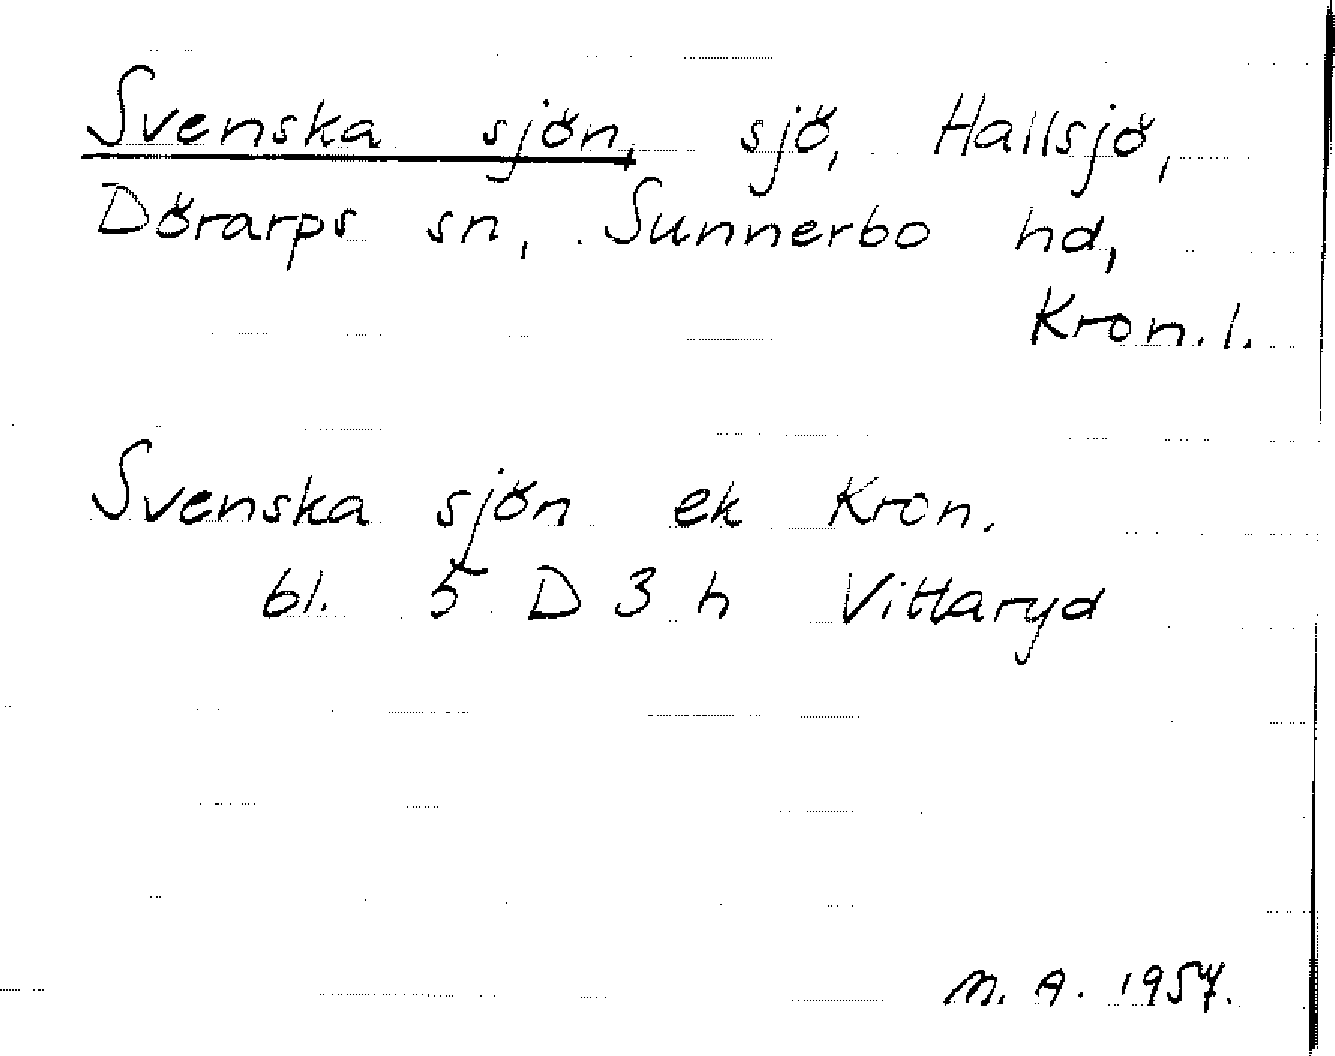 Svenska sjön, sjö, Hallsjö,
Dörarps sn, Sunnerbo hd,
Kron. l.
Svenska sjön ek Kron.
bl. 5 D 3 h Vittaryd
M. A. 1957.